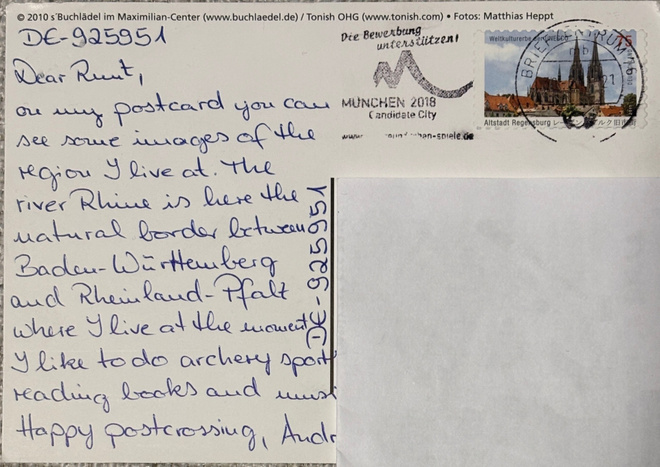 © 2010 s'Buchlädel im Maximilian-Center (www.buchlaedel.de) / Tonish OHG (www.tonish.com) • Fotos: Matthias Heppt
DE-925951
Dear Ruut,
on my postcard you can
see some images of the
region I live at. The
river Rhine is here the
natural border between
Baden-Württemberg
and Rheinland-Pfalt
where I live at the moment
I like to do archery sport
reading books and
Happy postcrossing, Andr
DE-925951
Die Bewerbung
unterstützen!
MÜNCHEN 2018
Candidate City
Weltkulturerbe der UNESCO
Altstadt Regensburg
BRIEFZENTRUM 76